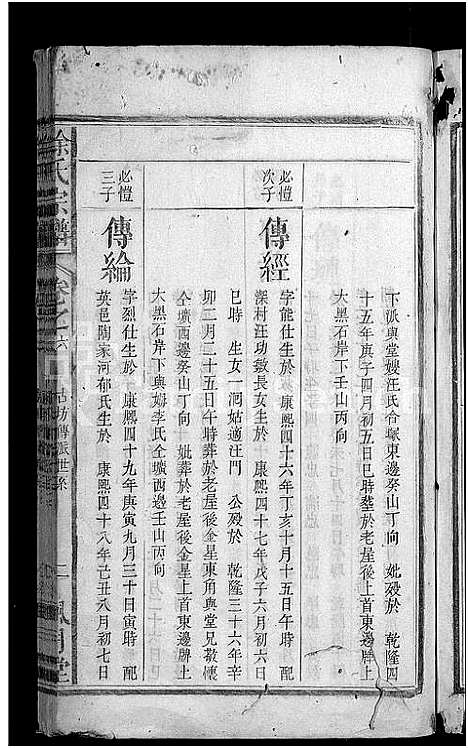 下派與堂嫂汪氏合塚東邊癸山丁向　妣殁於　乾隆四
十五年庚子四月初五日巳時塟於老屋後上首東邊牌上
大黑石岸下壬山丙向
必愷
次子
傳經
字能仕生於　康熙四十六年丁亥十月十五日午時　配
深村汪功敏長女生於　康熙四十七年戊子六月初六日
巳時　生女一泗姑適汪門　公殁於　乾隆三十六年辛
卯二月二十五日午時葬於老屋後金星東角與堂兄敬懷
仝壙西邊癸山丁向　妣葬於老屋後金星上首東邊牌上
大黑石岸下與姆李氏仝壙西邊壬山丙向
必愷
三子
傳綸
字烈仕生於　康熙四十九年庚寅九月三十日寅時　配
英邑陶家河郁氏生於　康熙四十八年己丑八月初七日
氏宗譜
卷之六
傳派世系
二
堂